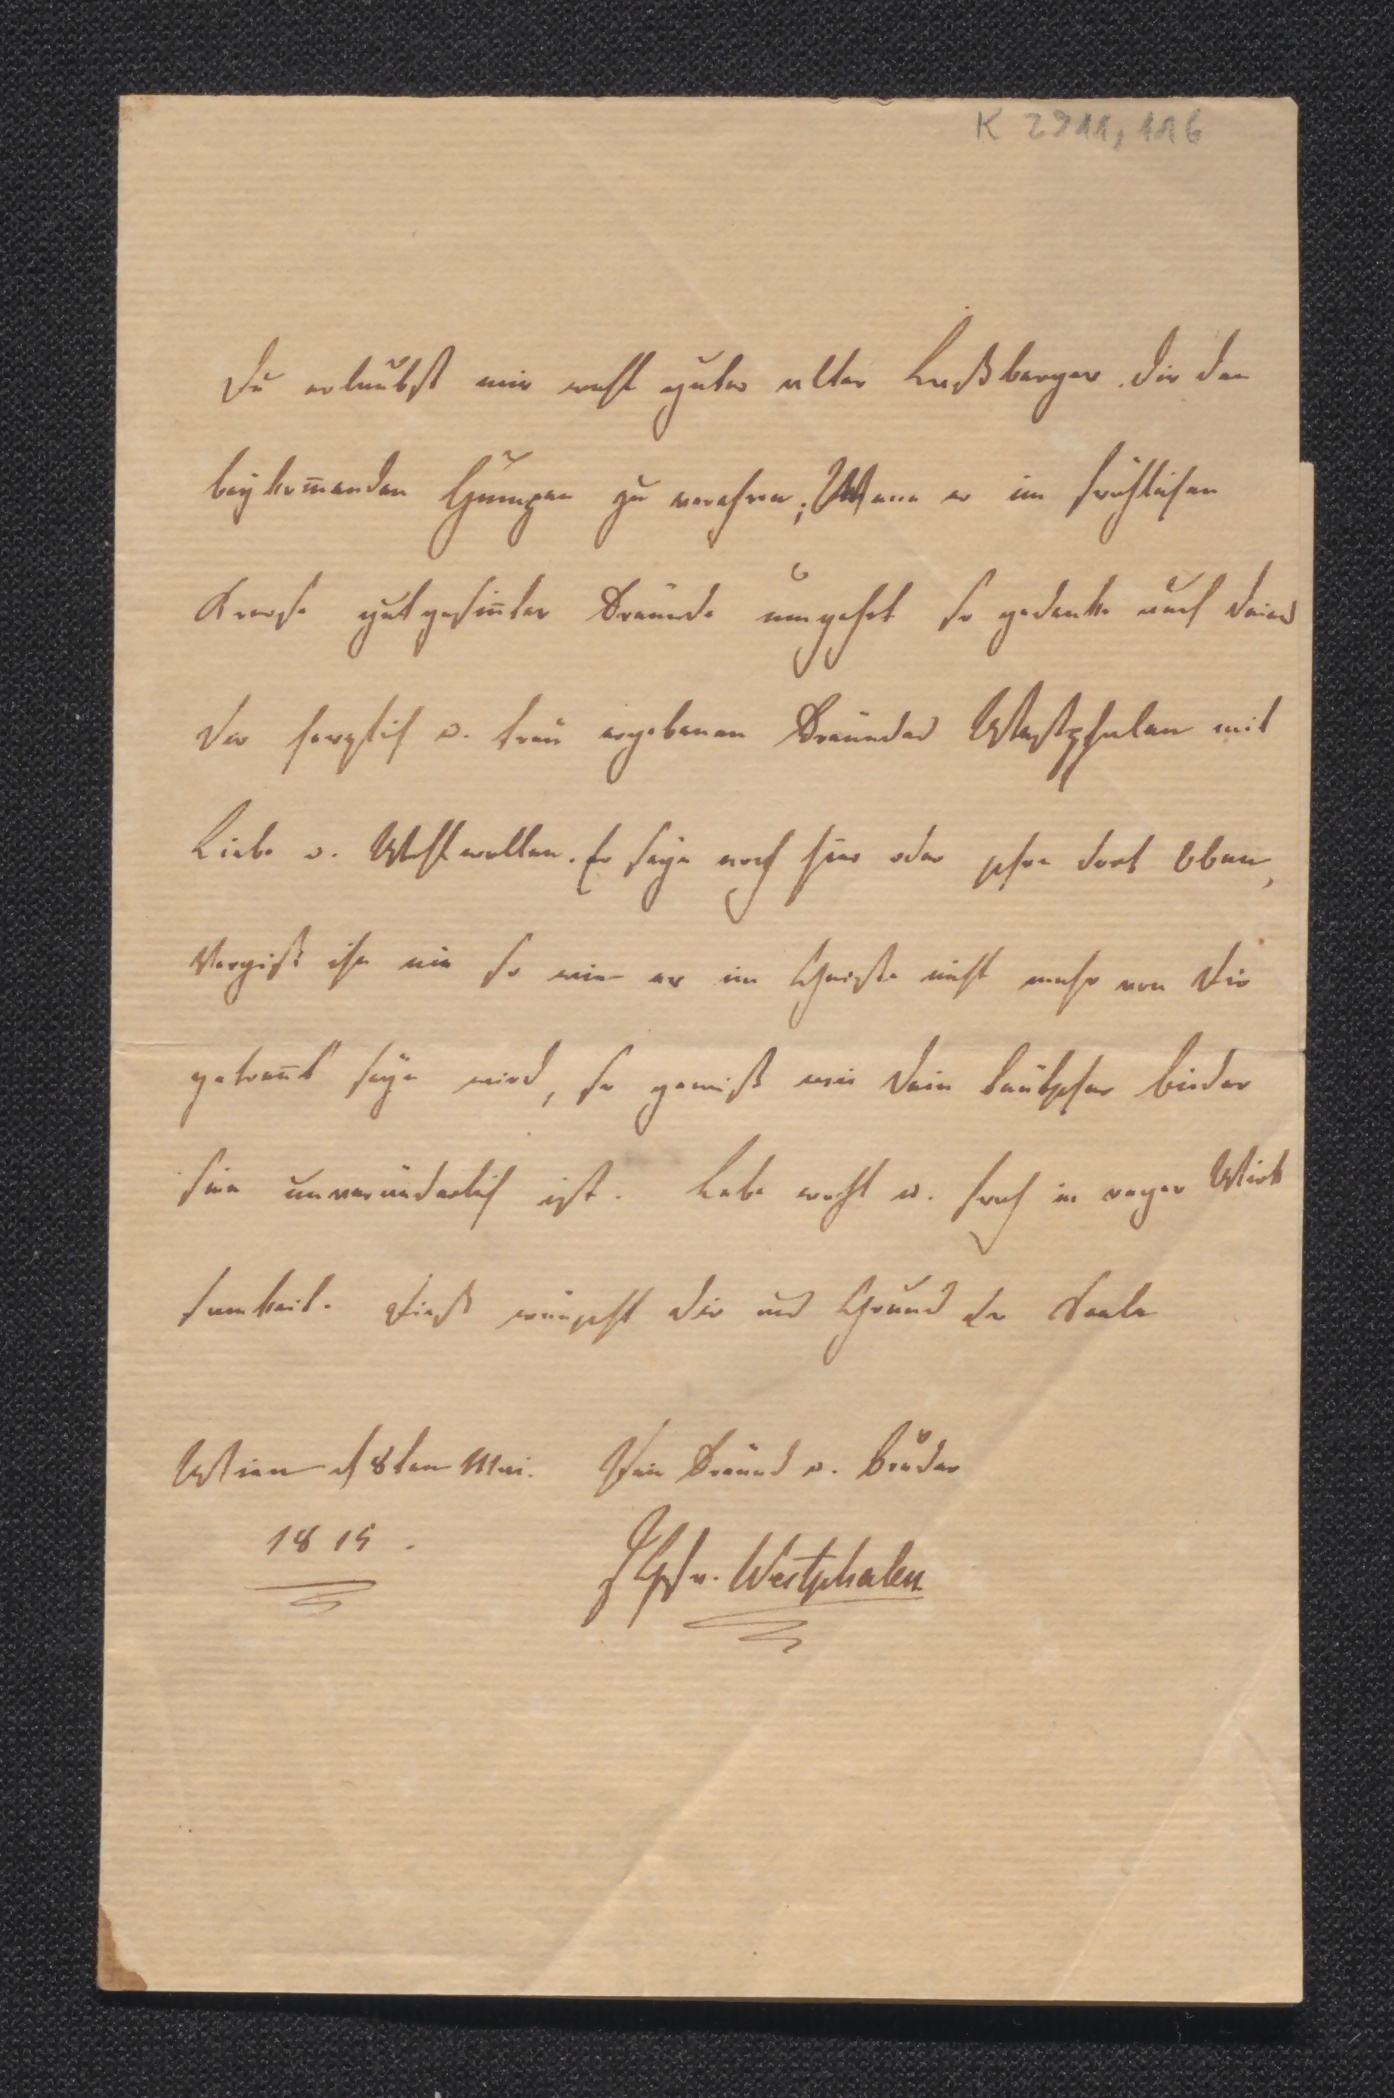 K 2911, 116
Du erlaubst mir wohl guter alter Laßberger. dir den
beykom̅enden Humpen zu verehren; Wenn er im fröhlichen
Kreise gutgesin̅ter Freunde umgehet so gedenke auch deines
dir herzlich u. treu ergebenen Freundes Westphalen mit
Liebe u. Wohlwollen. Er seye noch hier oder schon dort Oben,
Vergiß ihn nie so wie er im Geiste nicht mehr von dir
getren̅t seyn wird, so gewiß wie dein deutscher bieder
sinn unveränderlich ist. Lebe wohl u. froh in reger Wirk
samkeit. Dieß wünscht dir aus Grund der Seele
Wien d 8ten Mai. Dein Freund u. Bruder
1815.
v. Westphalen